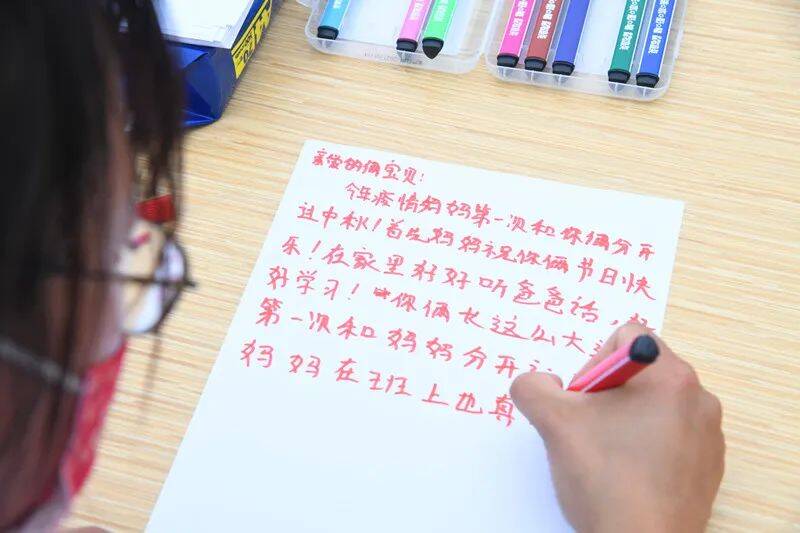 亲爱的俩宝贝:
今年疫情妈妈第一次和你俩分开
过中秋!首先妈妈祝你俩节日快
乐!在家里好好听爸爸话,好
好学习!你俩长这么大
第一次和妈妈分开
妈妈在班上也真